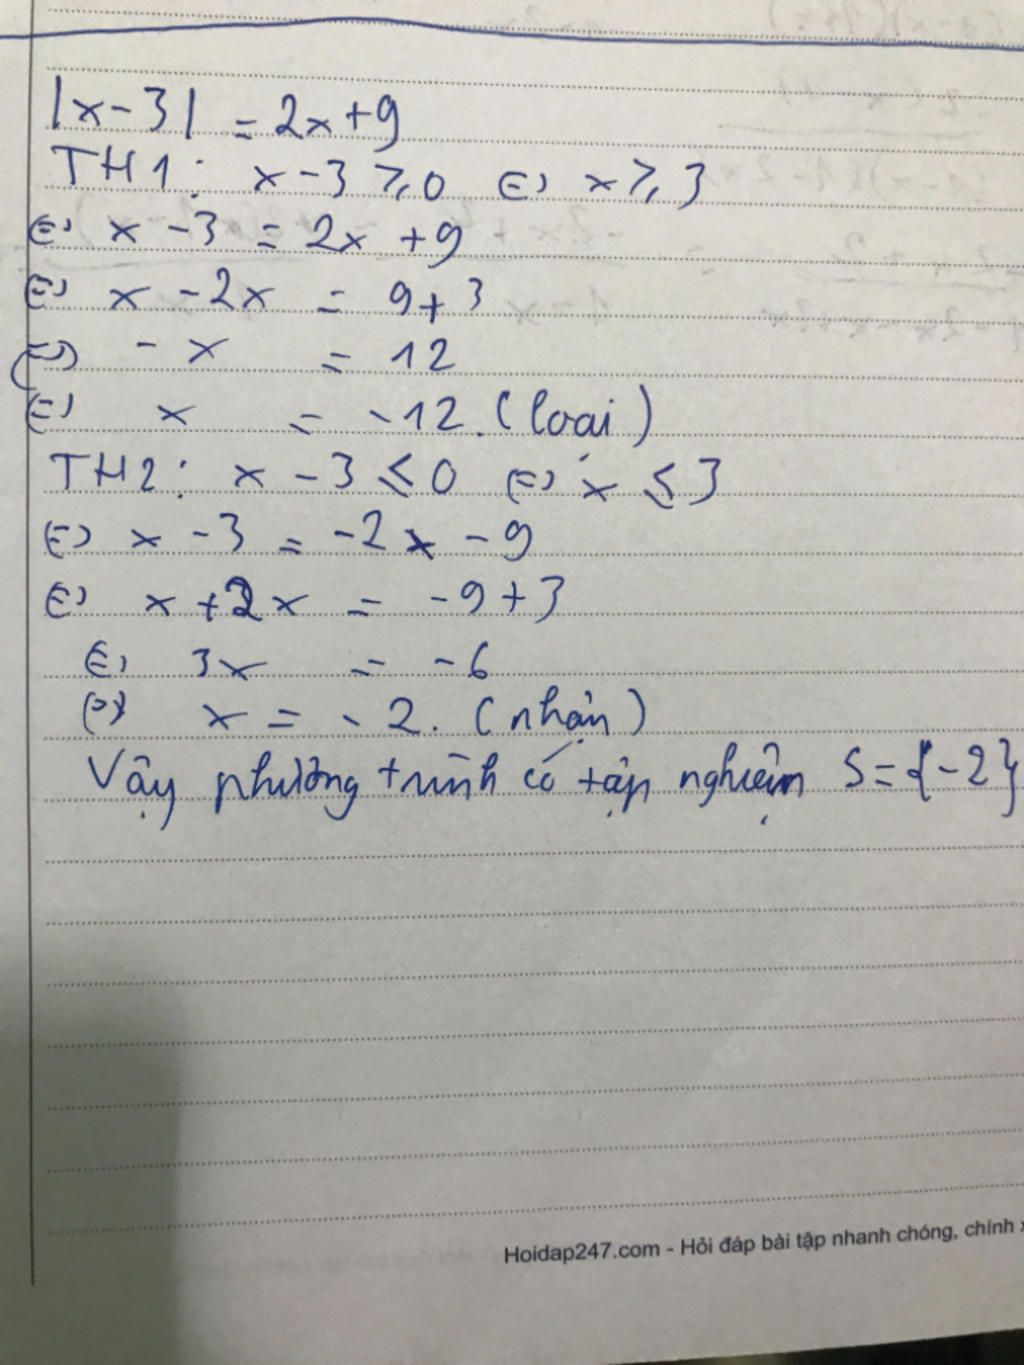 |x-3| = 2x+9
TH1: x-3 ≥ 0 ⇔ x ≥ 3
⇔ x -3 = 2x +9
⇔ x -2x = 9+3
⇔ -x = 12
⇔ x = -12. (loại)
TH2: x -3 ≤ 0 ⇔ x ≤ 3
⇔ x -3 = -2x -9
⇔ x +2x = -9+3
⇔ 3x = -6
⇔ x = -2. (nhận)
Vậy phương trình có tập nghiệm S={-2}
Hoidap247.com - Hỏi đáp bài tập nhanh chóng, chính